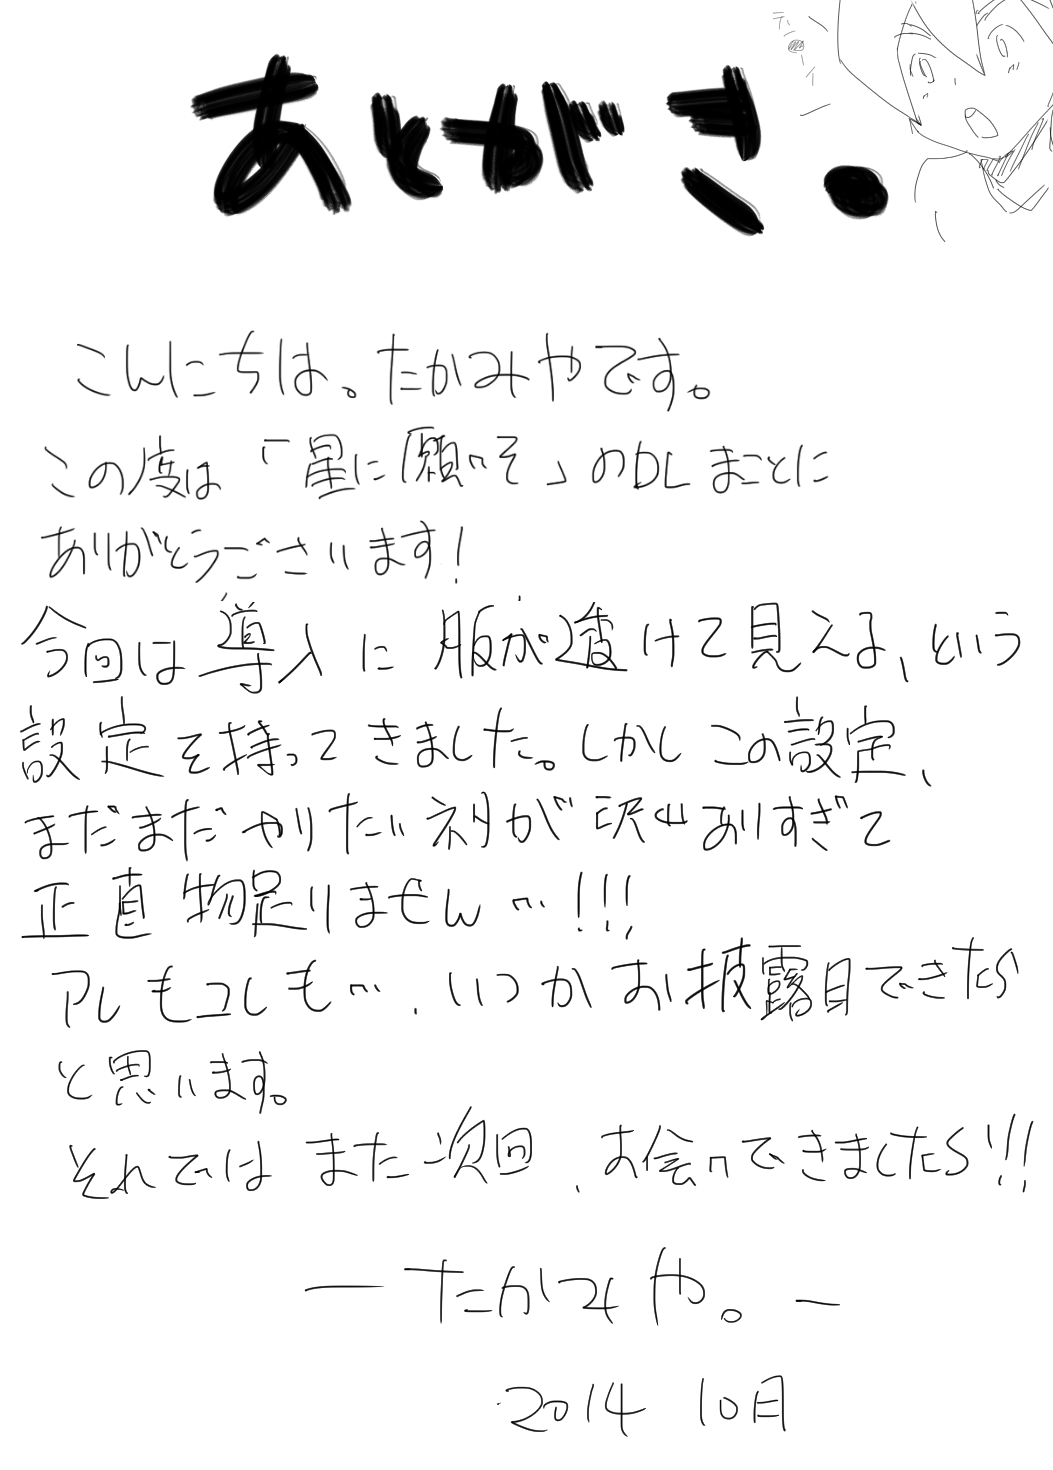 あとがき.
こんにちは。たかみやです。
この度は「星に願いを」のDLまことに
ありがとうございます!
今回は導入に服が透けて見える、という
設定を持ってきました。しかしこの設定、
まだまだやりたいネタが沢山ありすぎて
正直物足りません…!!!
アレもコレも…、いつかお披露目できたら
と思います。
それではまた次回、お会いできましたら!!!
ーたかみや。ー
2014 10月